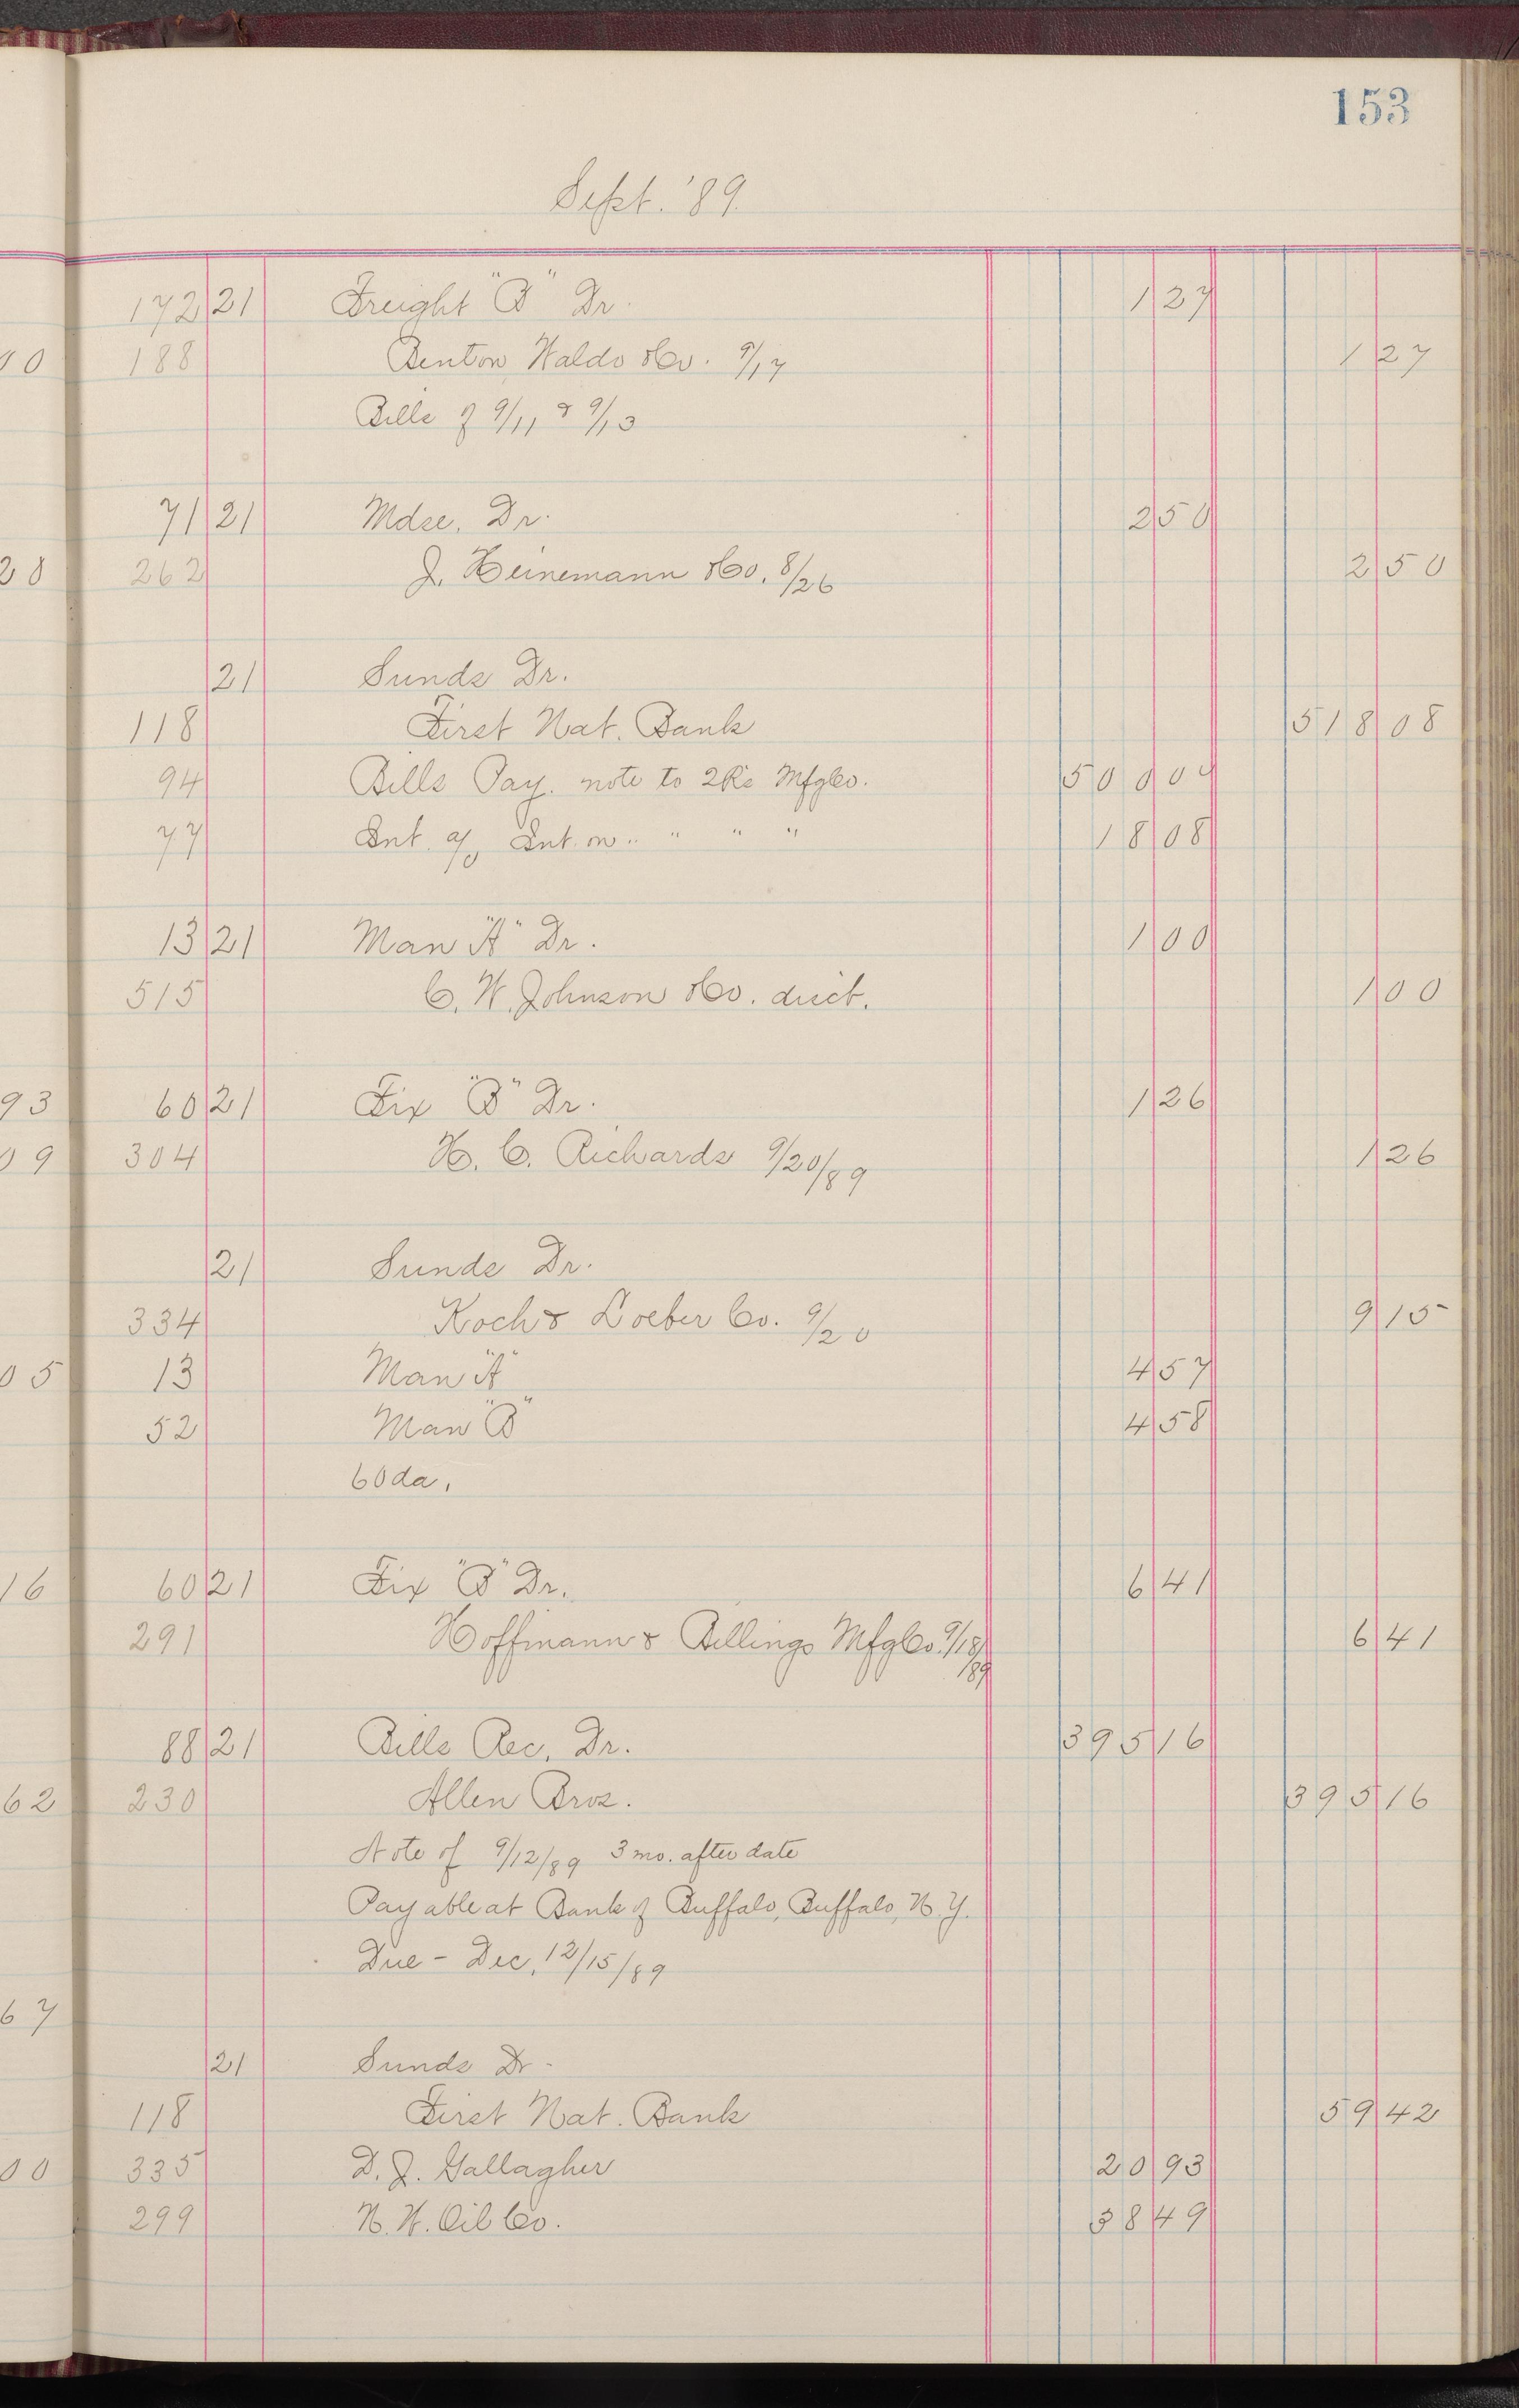 153
Sept. '89.
172 21 Freight "B" Dr. 1 27
188 Benton, Waldo & Co. 9/17 1 27
Bills of 9/11 & 9/13
71 21 Mdse. Dr. 2 50
262 J. Heinemann & Co. 8/26 2 50
21 Sunds Dr.
118 First Nat. Bank 518 08
94 Bills Pay. note to 2R's Mfg Co. 500 00
77 Int. a/c Int. on " " " " 18 08
13 21 Man "A" Dr. 1 00
515 C. W. Johnson & Co. disct. 1 00
60 21 Fix "B" Dr. 1 26
304 H. C. Richards 9/20/89 1 26
21 Sunds Dr.
334 Koch & Loeber Co. 9/20 9 15
13 Man "A" 4 57
52 Man "B" 4 58
60 da.
60 21 Fix "B" Dr. 6 41
291 Hoffmann & Billings Mfg Co. 9/18/89 6 41
88 21 Bills Rec. Dr. 395 16
230 Allen Bros. 395 16
Note of 9/12/89 3 mo. after date
Payable at Bank of Buffalo, Buffalo, N.Y.
Due - Dec. 12/15/89
21 Sunds Dr.
118 First Nat. Bank 59 42
335 D. J. Gallagher 20 93
299 N. W. Oil Co. 38 49